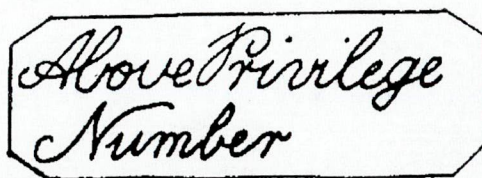 Above Privilege
Number